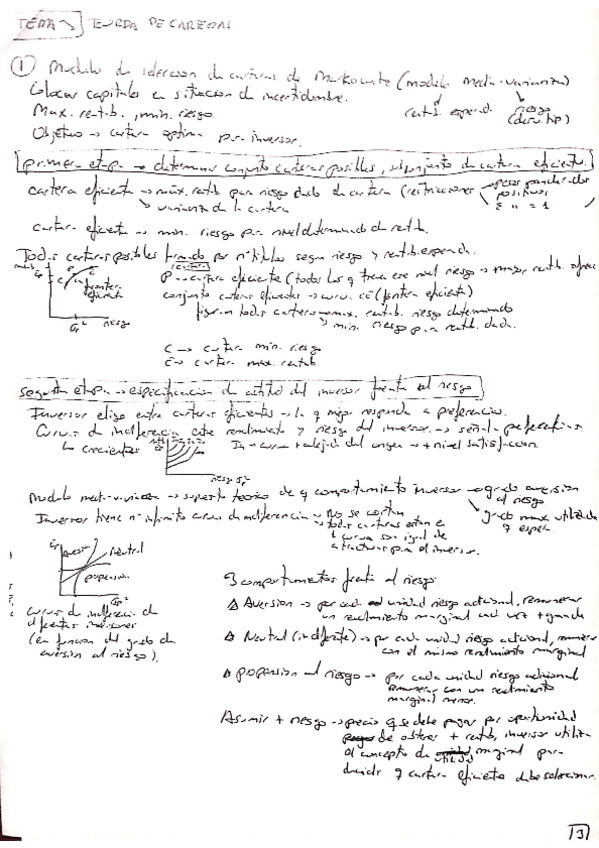 TEMA TEORIA DE CARTERAS
① Modelo de seleccion de carteras de Markowitz (modelo media-varianza)
Colocar capitales en situacion de incertidumbre.
rentb. esperd. riesgo
(desv. tip)
Max. rentb., min. riesgo
Objetivo → cartera optima para inversor.
primera etapa → determinar conjunto carteras posibles, subconjunto de cartera eficiente.
cartera eficiente → máx. rentb para riesgo dado de cartera (restricciones
positivos
= 1
varianza de la cartera
cartera eficiente → min. riesgo para nivel determinado de rentb.
Todas carteras posibles formado por n títulos segun riesgo y rentb. esperada.
P → cartera eficiente (todos los q tienen ese nivel riesgo → mayor rentb. ofrece
conjunto carteras eficientes → curva (frontera eficiente)
frontera
eficiente
riesgo
figuran todas carteras → max. rentb. riesgo determinado
min. riesgo para rentb. dada.
C → cartera min. riesgo
E → cartera max. rentab.
segunda etapa → especificacion de actitud del inversor frente al riesgo
Inversor elige entre carteras eficientes → la q mejor responda a preferencias.
Curvas de indiferencia entre rendimiento y riesgo del inversor → señala preferencias
crecientes
curva + alejada del origen → + nivel satisfaccion
riesgo
Modelo media-varianza → supuesto teorico de q comportamiento inversor → grado aversion
al riesgo
grado max utilidad
q espera.
Inversor tiene nº infinito curvas de indiferencia → No se cortan
todas carteras estan en
1 curva son igual de
atractivas para el inversor.
aversion
Neutral
propension
Curvas de indiferencia de
diferentes inversores
(en funcion del grado de
aversion al riesgo).
3 comportamientos frente al riesgo:
Δ Aversion → por cada unidad riesgo adicional, remunerar
un rendimiento marginal cada vez + grande
Δ Neutral (indiferente) → por cada unidad riesgo adicional, remunerar
con el mismo rendimiento marginal
Δ propension al riesgo → por cada unidad riesgo adicional
remunerar con un rendimiento
marginal menor.
Asumir + riesgo → precio q se debe pagar por oportunidad
de obtener + rentb, inversor utiliza
el concepto de utilidad marginal para
decidir q cartera eficiente debe seleccionar.
3